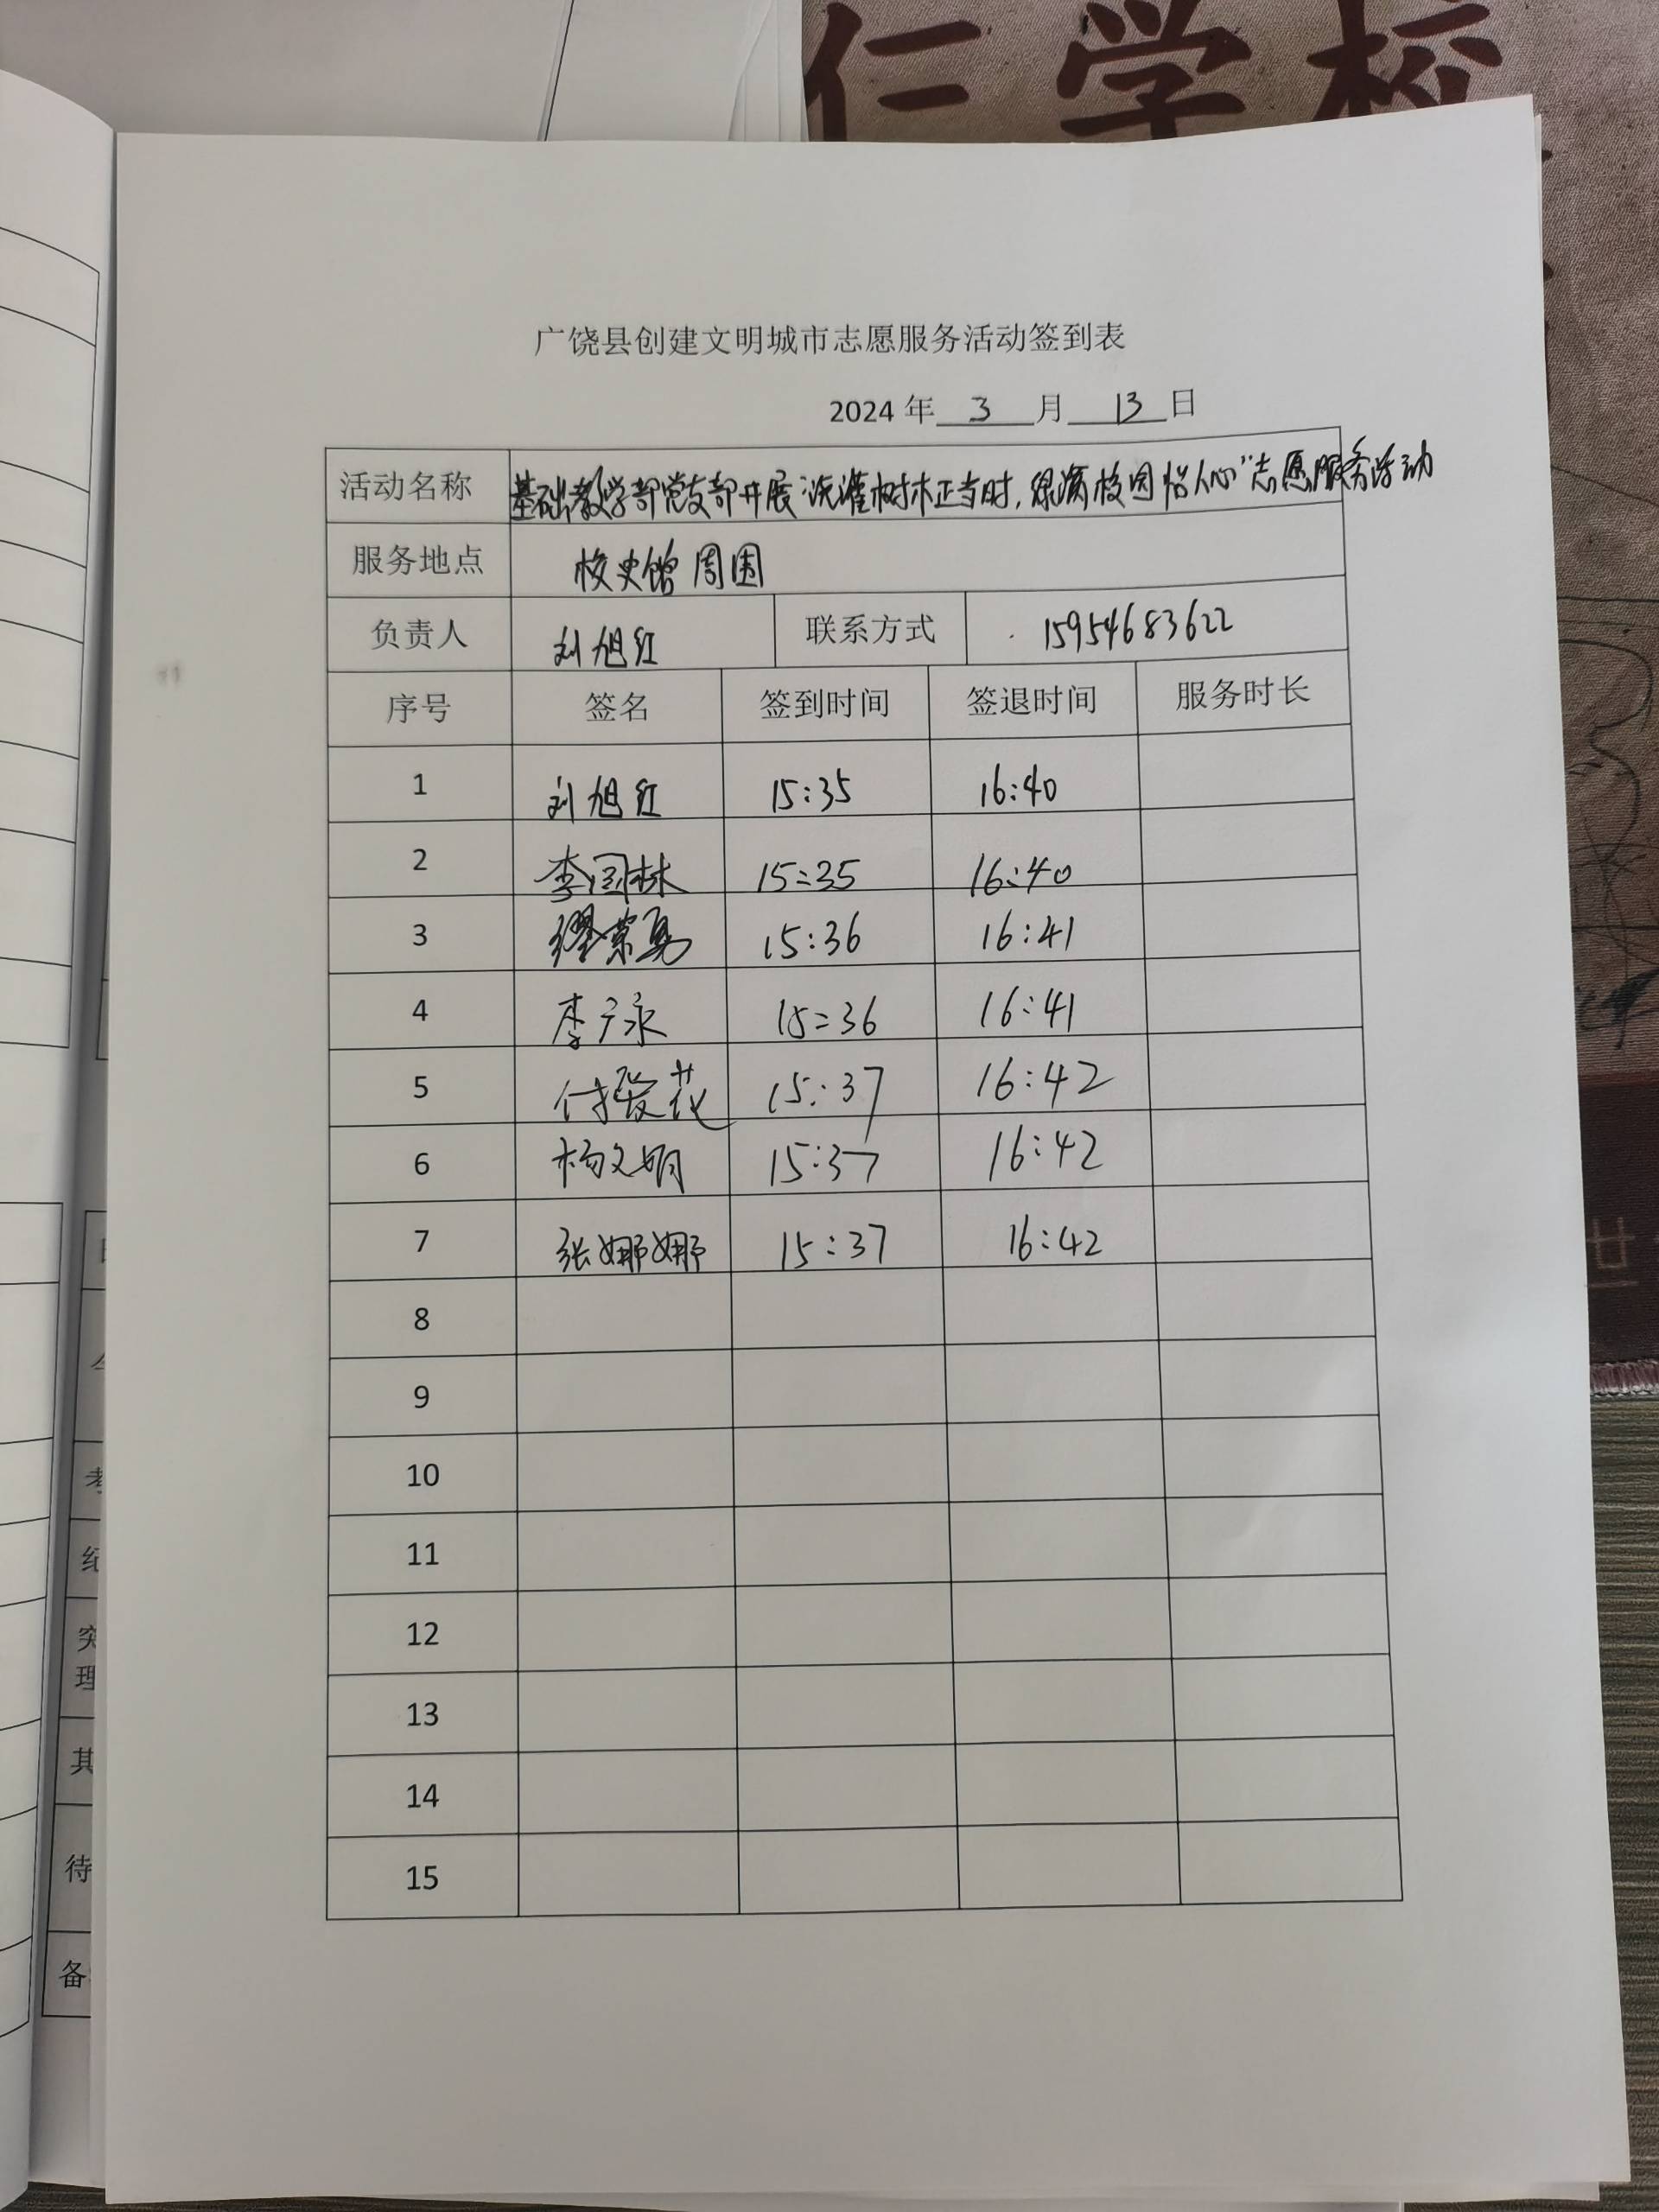 仁学校
广饶县创建文明城市志愿服务活动签到表
2024 年 3 月 13 日
活动名称 基础教学部党支部开展"浇灌树木正当时,绿满校园怡人心"志愿服务活动
服务地点 校史馆周围
负责人 刘旭红 联系方式 15954683622
序号 签名 签到时间 签退时间 服务时长
1 刘旭红 15:35 16:40
2 李国林 15:35 16:40
3 缪荣勇 15:36 16:41
4 李广永 15:36 16:41
5 付爱花 15:37 16:42
6 杨文娟 15:37 16:42
7 张娜娜 15:37 16:42
8
9
10
11
12
13
14
15
理
其
待
备